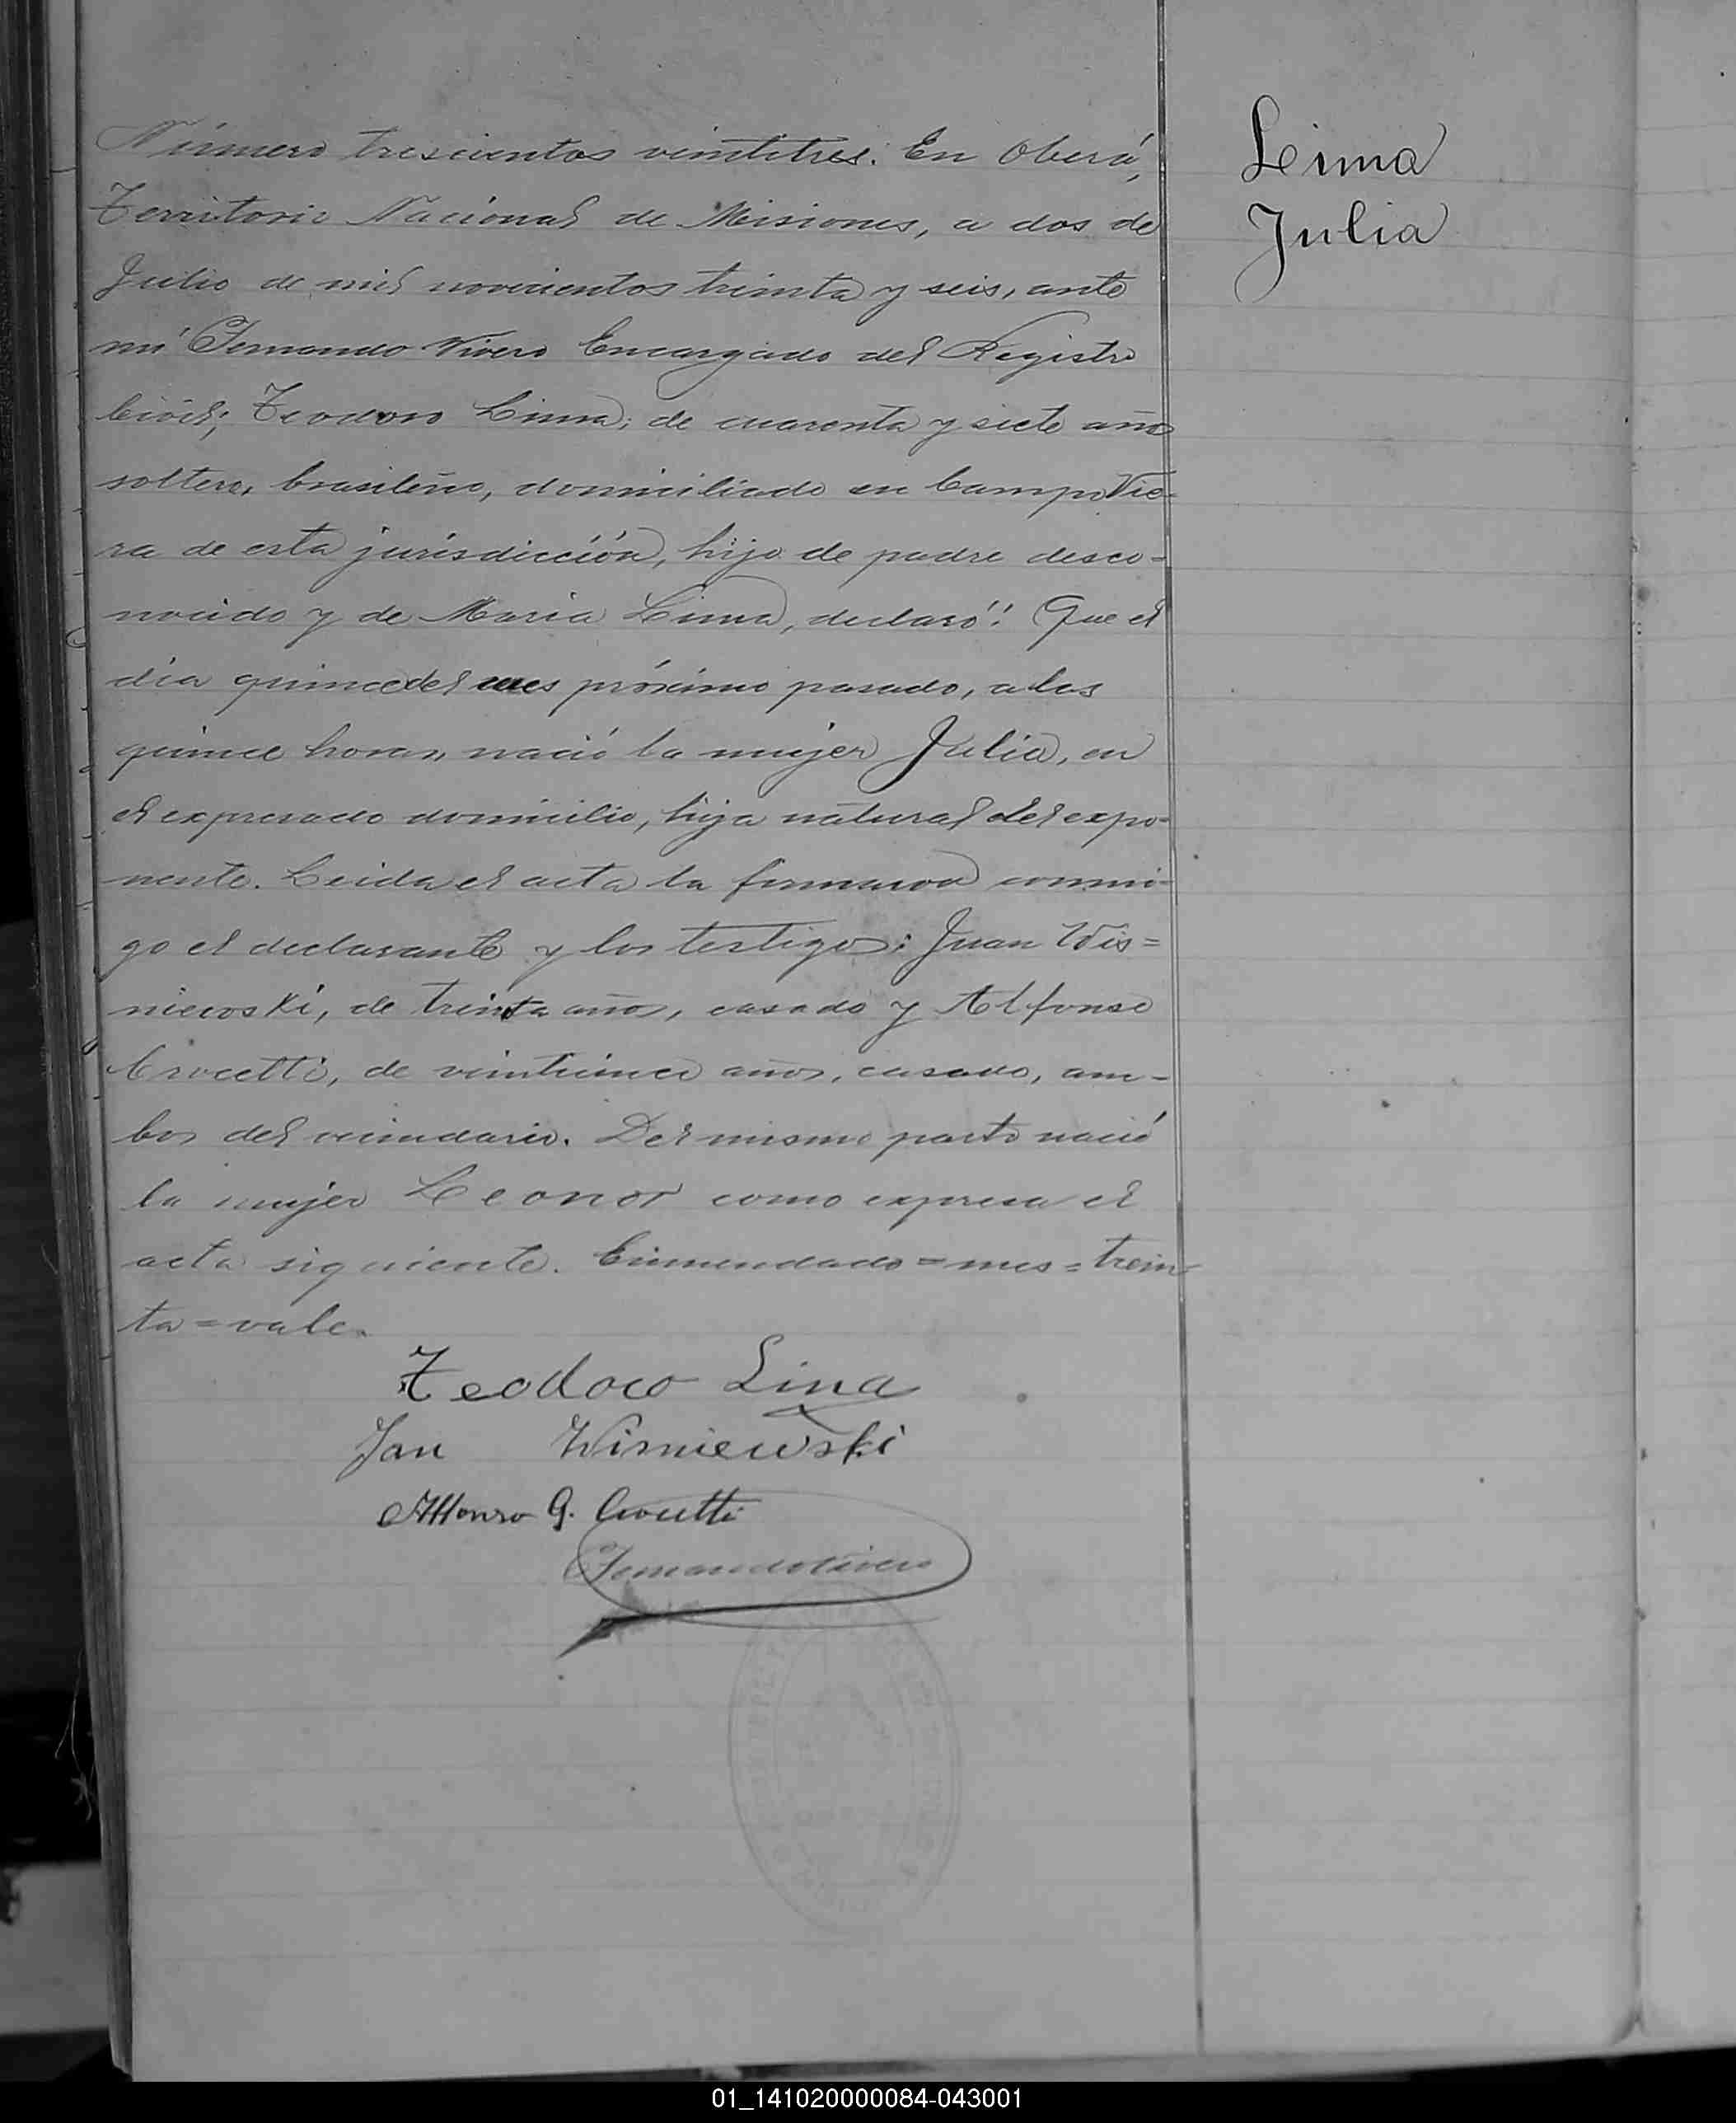 Número trescientos veintitres. En Oberá,
Territorio Nacional de Misiones, a dos de
Julio de mil novecientos treinta y seis, ante
mí Fernando Vivero Encargado del Registro
Civil; Teodoro Lima; de cuarenta y siete años
soltero, brasileño, domiciliado en Campo Vie-
ra de esta jurisdicción, hijo de padre desco-
nocido y de Maria Lima, declaró: Que el
dia quince del mes próximo pasado, a las
quince horas, nació la mujer Julia, en
el expresado domicilio, hija natural del expo-
nente. Leida el acta la firmaron conmi-
go el declarante y los testigos: Juan Wis=
niewski, de treinta años, casado y Alfonso
Crocetti, de veinticinco años, casado, am-
bos del vecindario. Del mismo parto nació
la mujer Leonor como expresa el
acta siguiente. Enmendado=mes=trein-
ta=vale.
Teodoro Lima
Jan Wisniewski
Alfonso G. Crocetti
Fernando Vivero
Lima
Julia
01_141020000084-043001